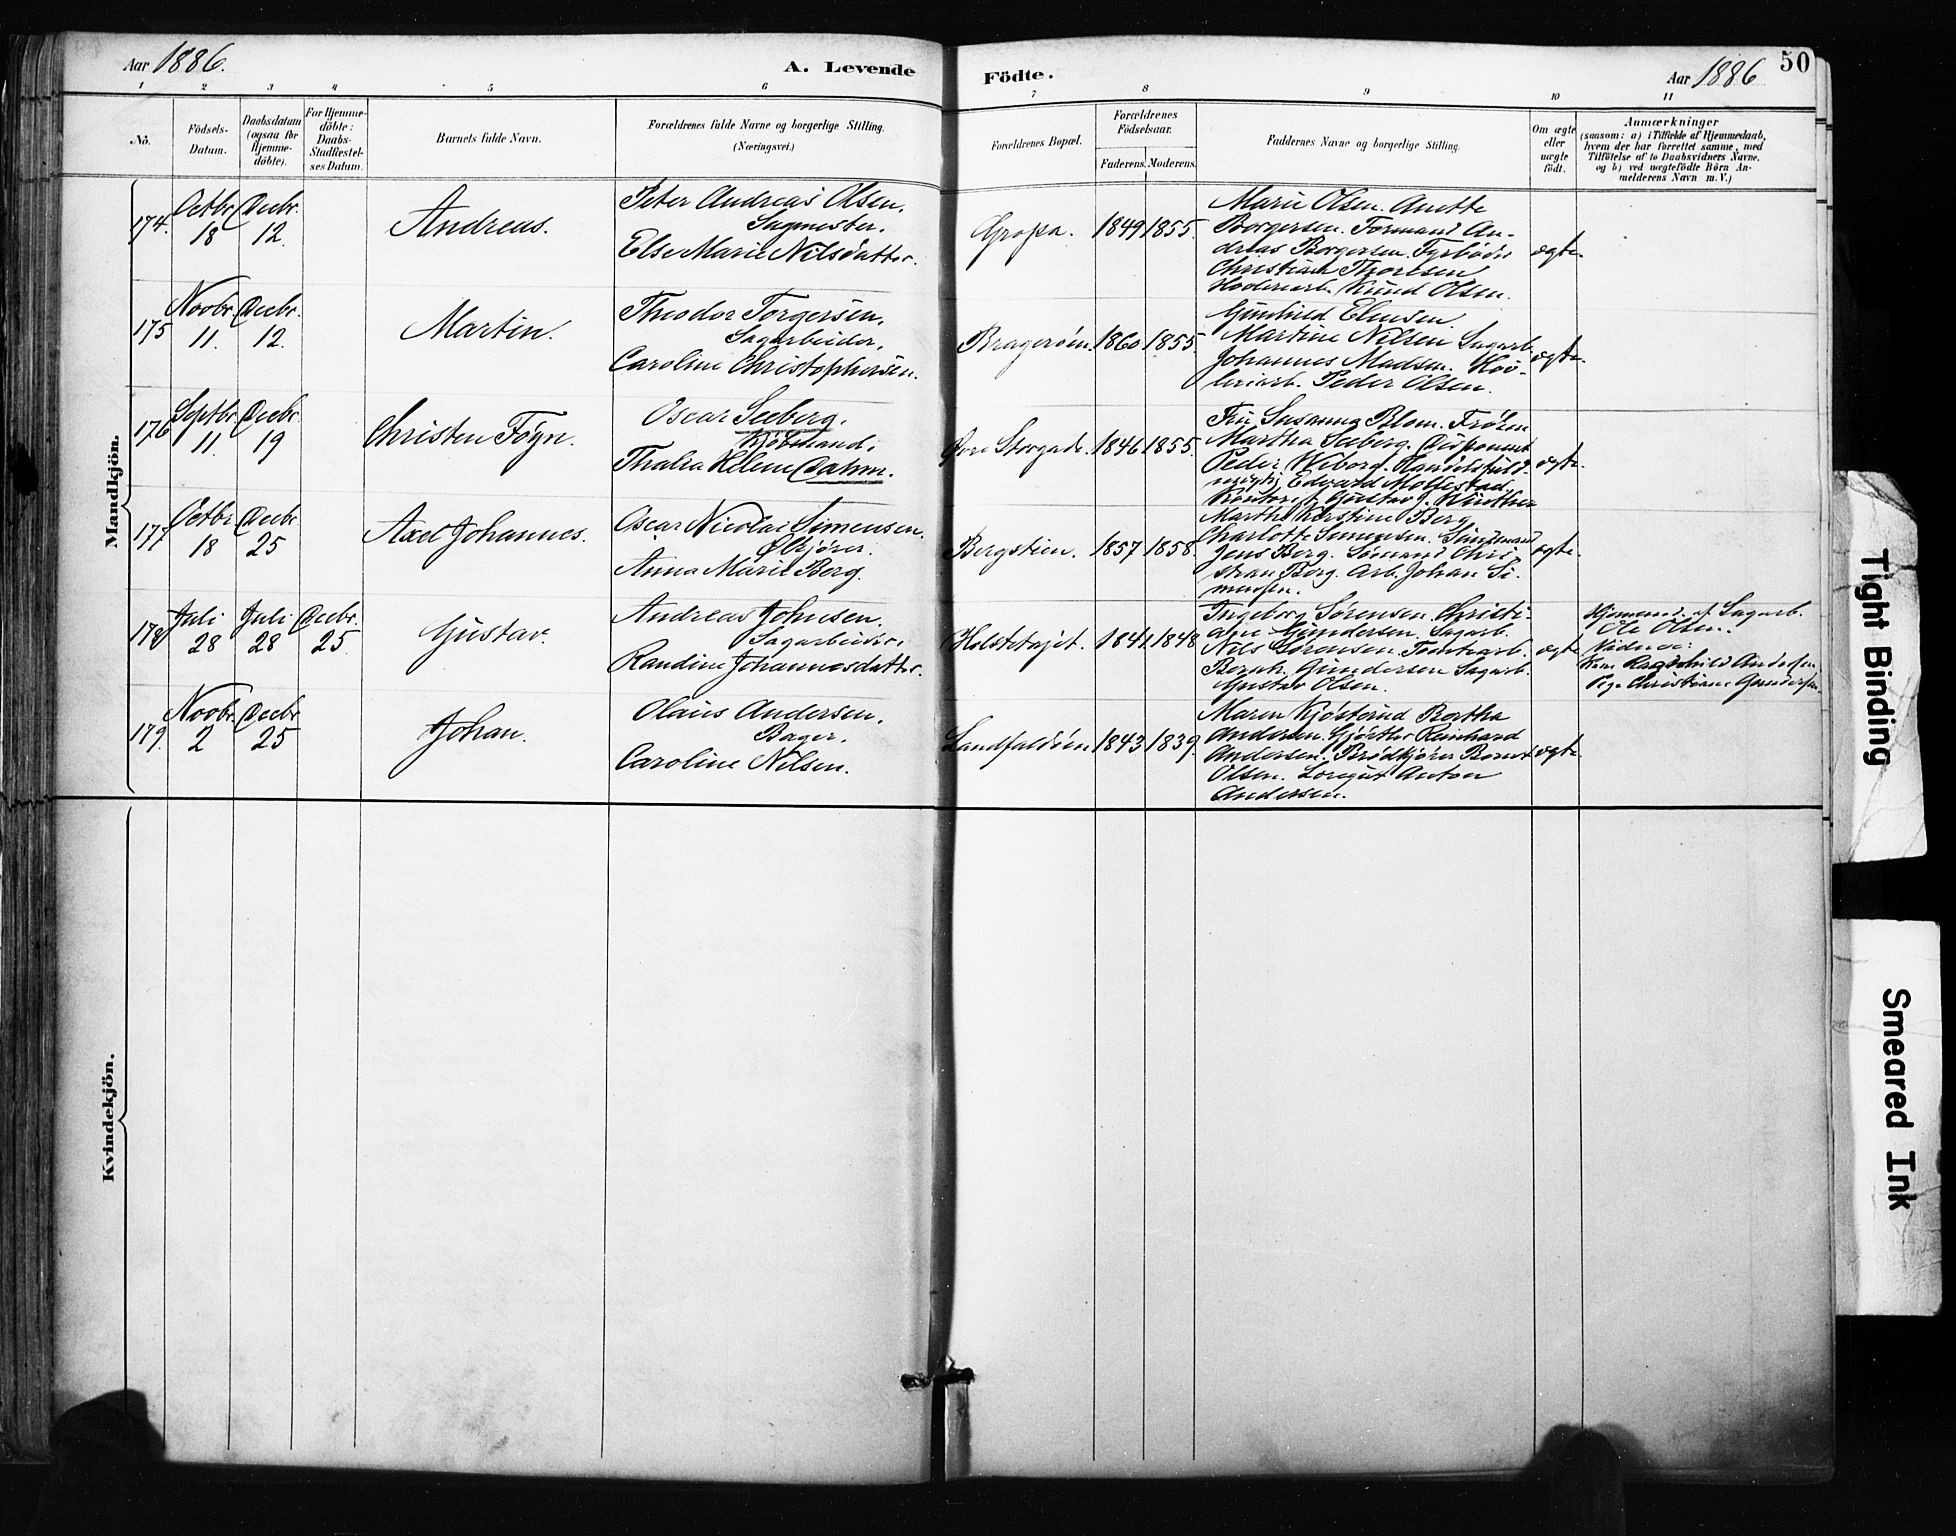 Aar 1886.
A. Levende
Födte.
Aar 1886
50
1 2 3 4 5 6 7 8 9 10 11
No.
Födsels-
Datum.
Daabsdatum
(ogsaa for
Hjemme-
döbte).
For Hjemme-
döbte:
Daabs-
Stadfæstel-
ses Datum.
Barnets fulde Navn.
Forældrenes fulde Navne og borgerlige Stilling.
(Næringsvei.)
Forældrenes Bopæl.
Forældrenes
Födselsaar.
Faderens. Moderens.
Faddernes Navne og borgerlige Stilling.
Om ægte
eller
uægte
födt.
Anmærkninger
(saasom: a) i Tilfælde af Hjemmedaab,
hvem der har forrettet samme, med
Tilföielse af to Daabsvidners Navne,
og b) ved uægtefödte Börn An-
melderens Navn m. V.)
Mandkjön.
174.
Octbr.
18
Decbr.
12.
Andreas.
Peter Andreas Olsen.
Sagmester.
Else Marie Nilsdatter.
Gropa.
1849
1855.
Marie Olsen. Anette
Borgersen. Formand An-
dreas Borgersen. Fyrbøder
Christian Thoresen
Høvleriarb. Knud Olsen.
ægte.
175
Novbr.
11.
Decbr.
12.
Martin.
Theodor Torgersen.
Sagarbeider.
Caroline Christophersen.
Bragerøen.
1860
1855.
Gunhild Elensen.
Martine Nilsen Sagarb.
Johannes Madsen. Høv-
leriarb. Peder Olsen.
ægte.
176
Septbr.
11.
Decbr.
19
Christen Föyn.
Oscar Seeberg.
Kjøbmand.
Thalia Helene Dahm.
Øvre Storgade.
1846
1855.
Fru Susanna Blom. Frøken
Martha Seeberg. Disponent
Peder Wiborg. Handelsfuld-
mægtig Edvard Mollestad.
Kontorist Gustav J.
ægte.
177
Octbr.
18
Decbr.
25
Axel Johannes.
Oscar Nicolai Simensen.
Ølkjører.
Anna Marie Berg.
Bergstien.
1857
1858.
Marthe Kirstine Berg
Charlotte Simensen.
Jens Berg. Sømand Chri-
stian Berg. Arb. Johan Si-
mensen.
ægte.
178
Juli
28
Juli
28
Decbr.
25.
Gustav.
Andreas Johnsen.
Sagarbeider.
Randine Johannesdatter.
1841.
1848
Ingeborg Sørensen. Christi-
ane Gundersen. Sagarb.
Nils Sørensen. Tomtearb.
Bernh. Gundersen Sagarb.
Gustav Olsen.
ægte
Hjemmed. af Sagarb.
Ole Olsen.
Vidner:
Kone Ragnhild Andersen
Pige Christiane Gundersen
179.
Novbr.
2
Decbr.
25
Johan.
Olaus Andersen.
Bager.
Caroline Nilsen.
Landfaldøen.
1843
1839.
Maren Kjøsterud Bertha
Andersen. Gjørtler Reinhard
Andersen. Brødkjører Bernt
Olsen. Loregut Anton
Andersen.
ægte.
Kvindekjön.
Tight Binding
Smeared Ink